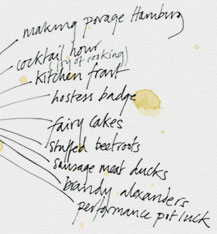 making porage Hamburg
cocktail hour
of cooking)
kitchen front
hostess badge
fairy cakes
stuffed beetroots
sausage meat ducks
brandy alexanders
performance pot luck